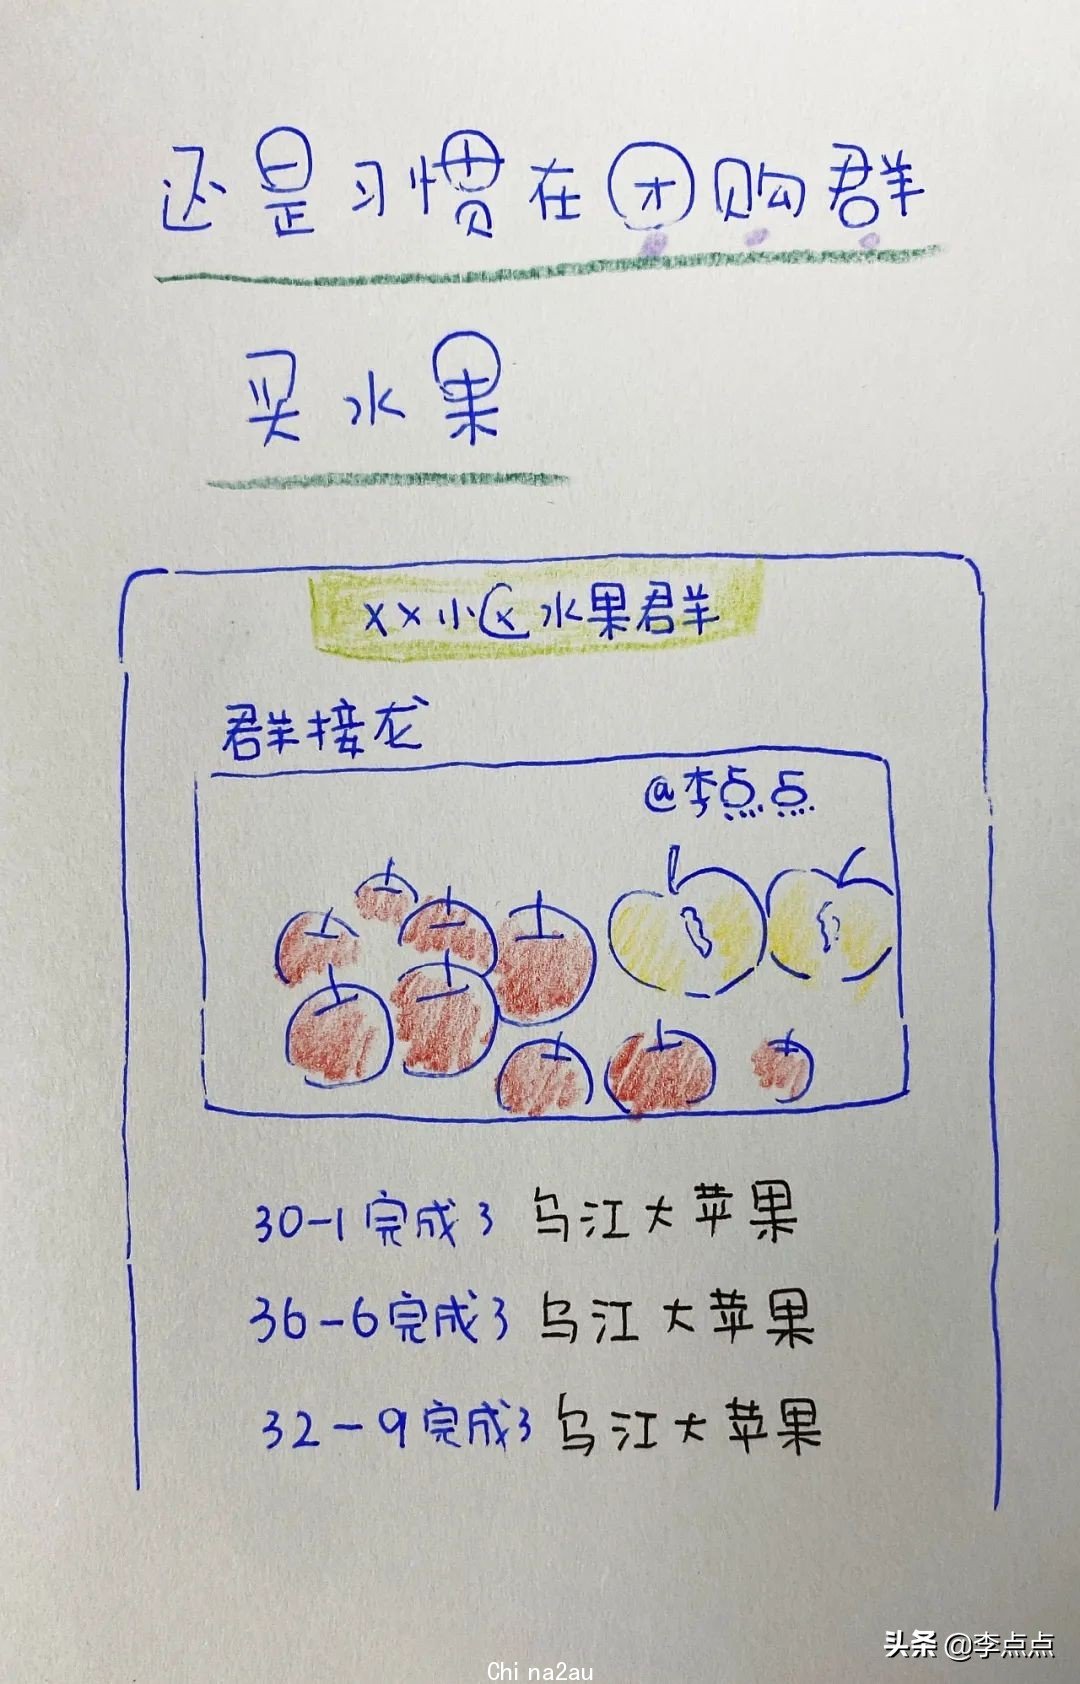 还是习惯在团购群
买水果
XX小区水果群
群接龙
@李点点
30-1完成3 乌江大苹果
36-6完成3 乌江大苹果
32-9完成3 乌江大苹果
头条 @李点点
China2au